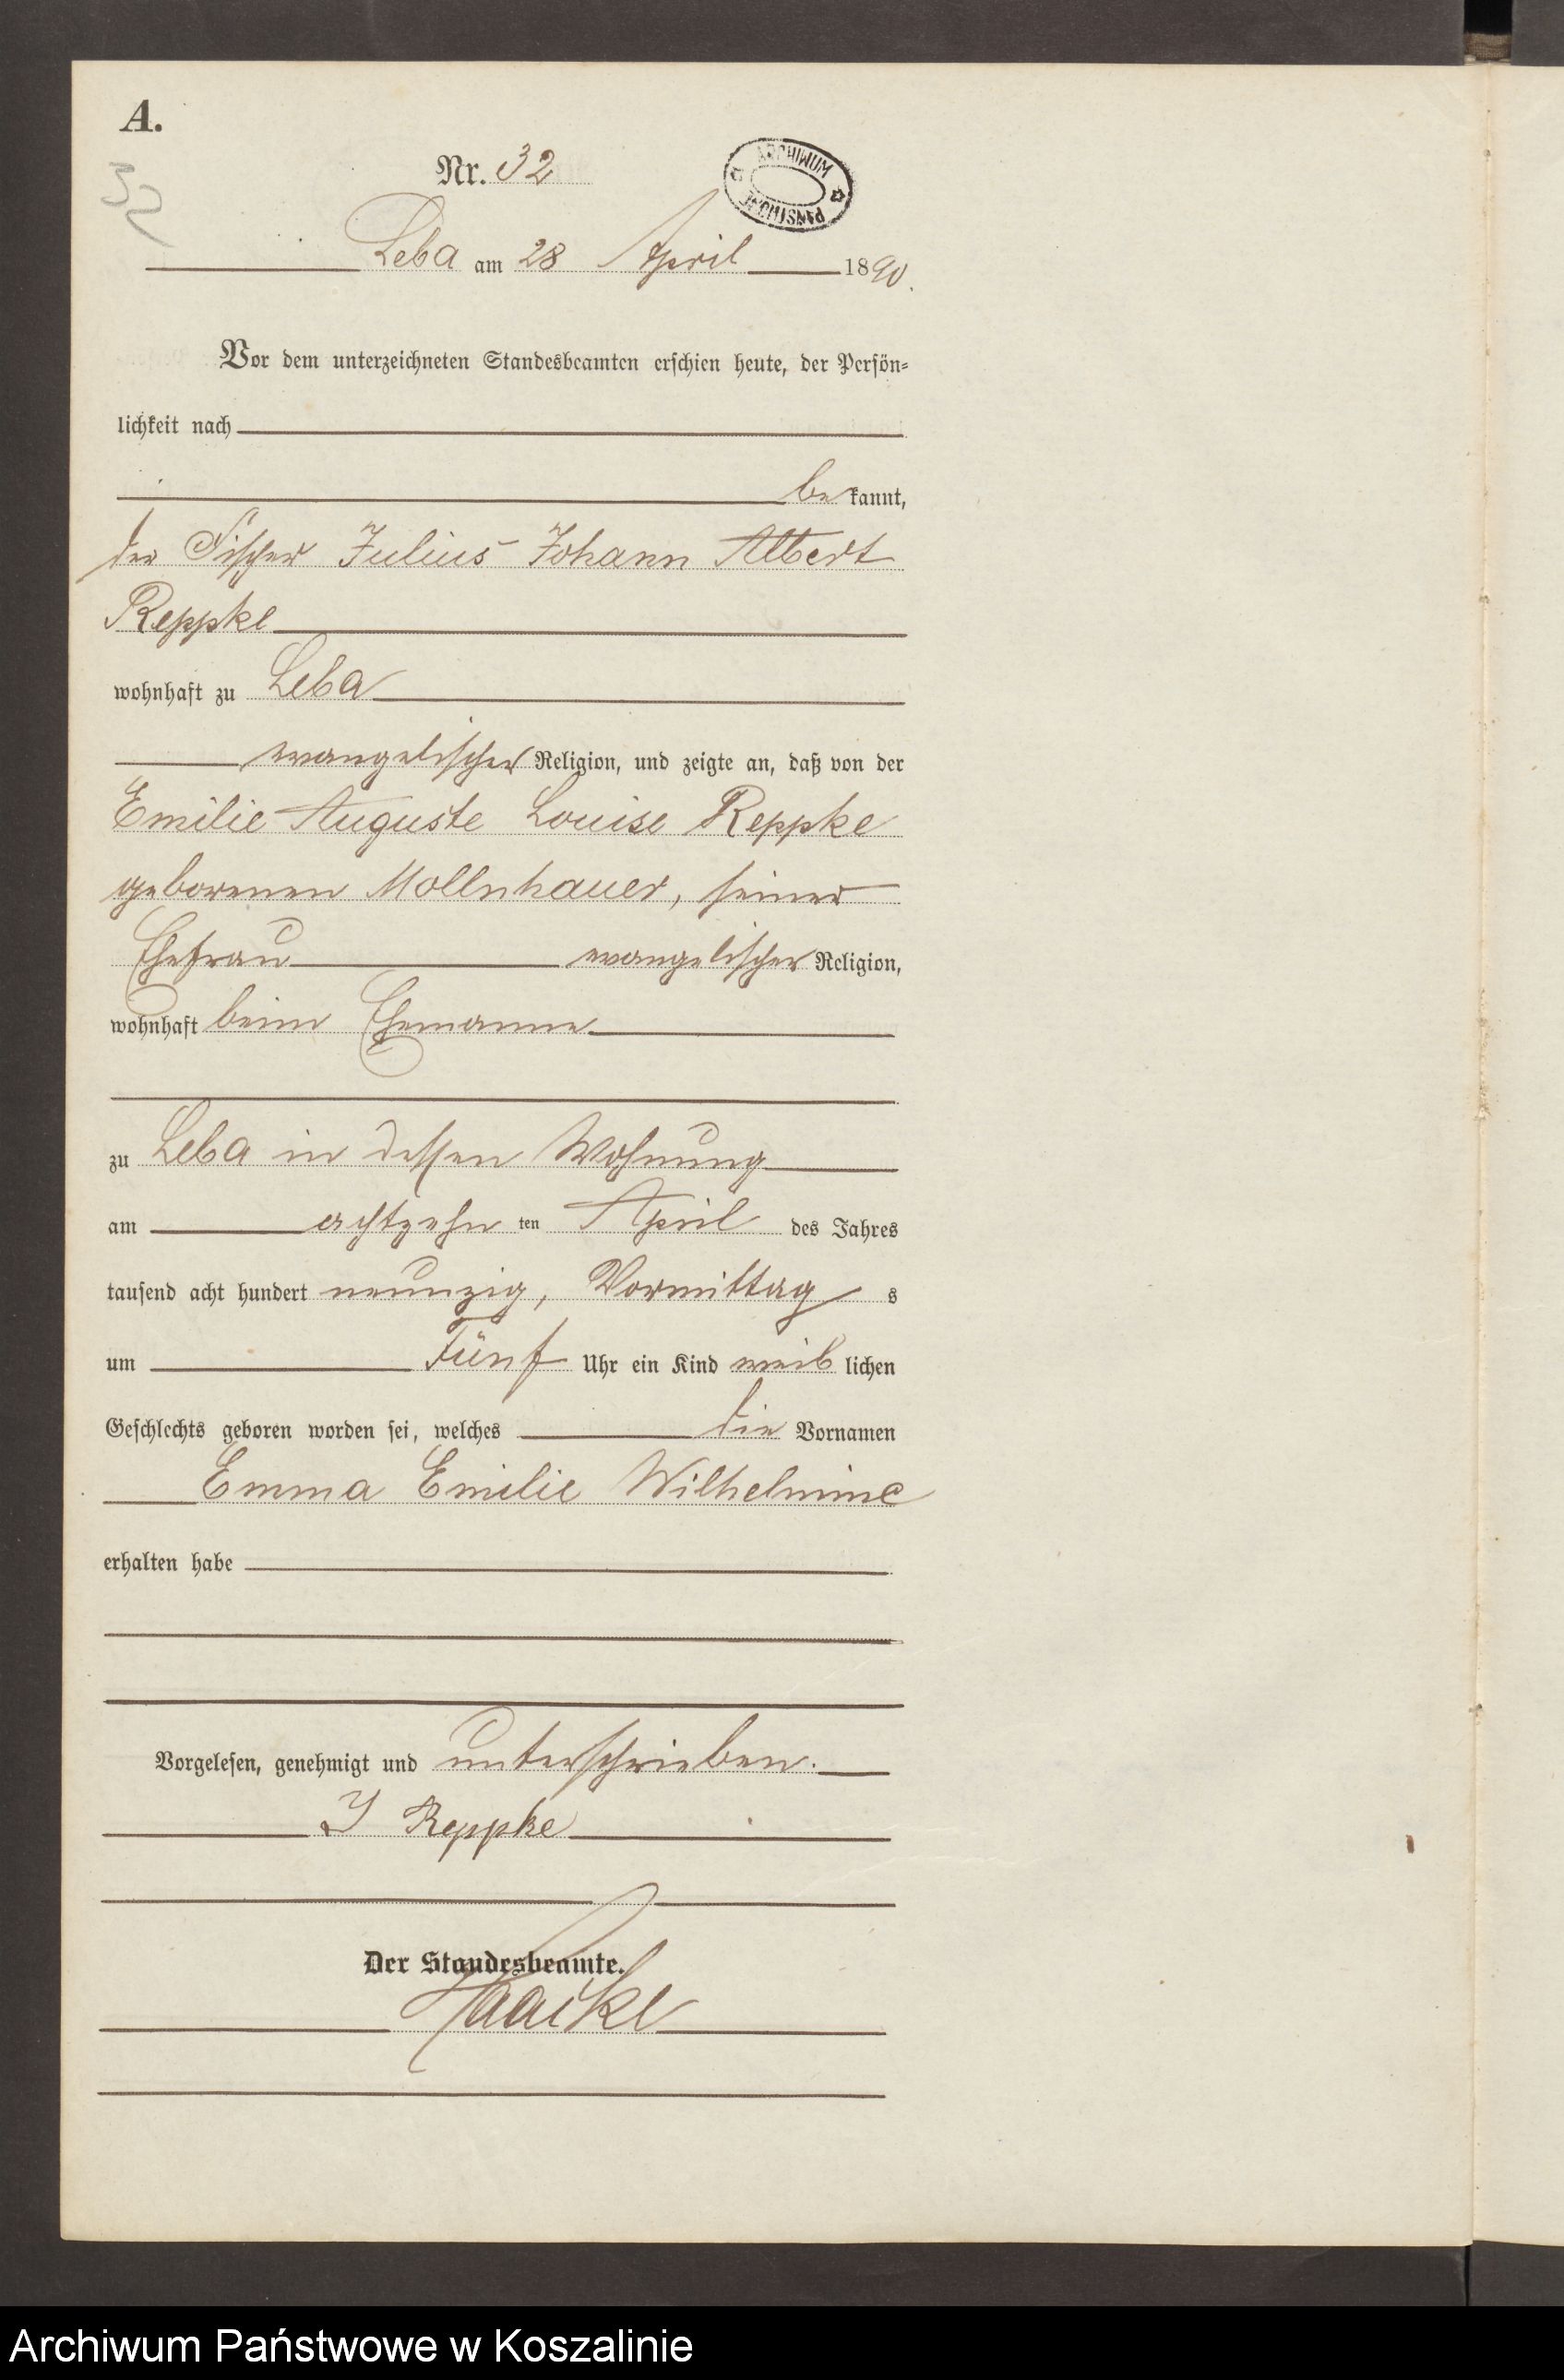 A.
32
Nr. 32
ARCHIWUM PAŃSTWOWE
Leba am 28 April 1890.
Vor dem unterzeichneten Standesbeamten erschien heute, der Persön-
lichkeit nach
bekannt,
der Fischer Julius Johann Albert
Reppke
wohnhaft zu Leba
evangelischer Religion, und zeigte an, daß von der
Emilie Auguste Louise Reppke
geborenen Mollnhauer, seiner
Ehefrau evangelischer Religion,
wohnhaft beim Ehemanne
zu Leba in dessen Wohnung
am achtzehn ten April des Jahres
tausend acht hundert neunzig, Vormittag s
um Fünf Uhr ein Kind weiblichen
Geschlechts geboren worden sei, welches die Vornamen
Emma Emilie Wilhelmine
erhalten habe
Vorgelesen, genehmigt und unterschrieben.
J Reppke
Der Standesbeamte.
Archiwum Państwowe w Koszalinie